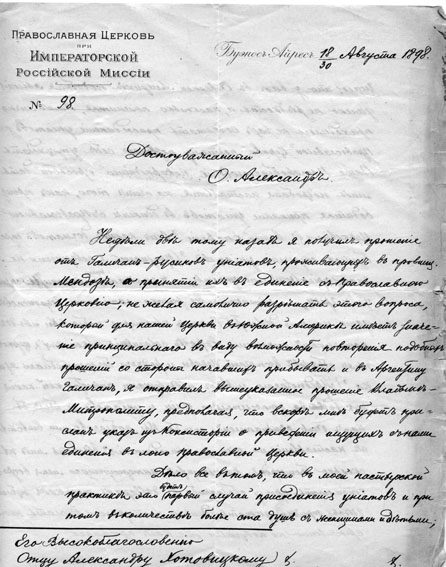 Православная Церковь
при
Императорской
Россійской Миссіи
№ 98.
Буэносъ Айресъ 18/30 Августа 1898.
Достоуважаемый
О. Александръ
Недѣли двѣ тому назадъ я получилъ прошеніе
отъ Галичанъ-Русиновъ уніатовъ, проживающихъ въ провинц.
Мендоза, о принятіи ихъ въ единеніе съ Православною
Церковію; не желая самолично разрѣшать этого вопроса,
который для нашей Церкви въ Южной Америкѣ имѣетъ значе-
ніе принципіальнаго въ виду возможности повторенія подобныхъ
прошеній со стороны начавшихъ прибывать и въ Аргентину
Галичанъ, я отправилъ вышеуказанное прошеніе Владыкѣ-
Митрополиту, предполагая, что вскорѣ мнѣ будетъ при-
сланъ указъ изъ Консисторіи о приведеніи ищущихъ съ нами
единенія въ лоно православной Церкви.
Дѣло все въ томъ, что въ моей пастырской
практикѣ это первый случай присоединенія уніатовъ и при
томъ въ количествѣ болѣе ста душъ съ женщинами и дѣтьми,
Его Высокоблагословенію
Отцу Александру Хотовицкому